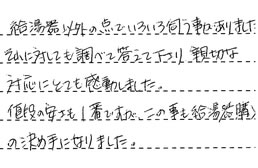 給湯器以外の点でいろいろ伺う事がありました
それに対しても調べて答えて下さり親切な
対応にとても感動しました。
値段の安さも1番ですが、この事も給湯器購入
の決め手になりました。